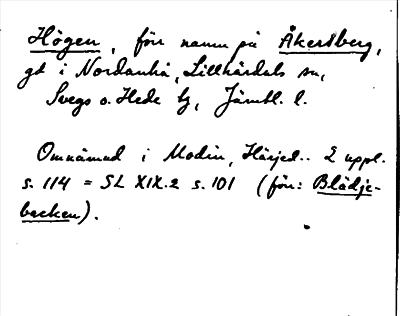 Högen, förr namn på Åkersberg,
gd i Nordanhå, Lillhärdals sn,
Svegs o. Hede tg, Jämtl. l.
Omnämnd i Modin, Härjed.. 2 uppl.
s. 114 = SL XIX.2 s. 101 (förr: Blädje-
backen).